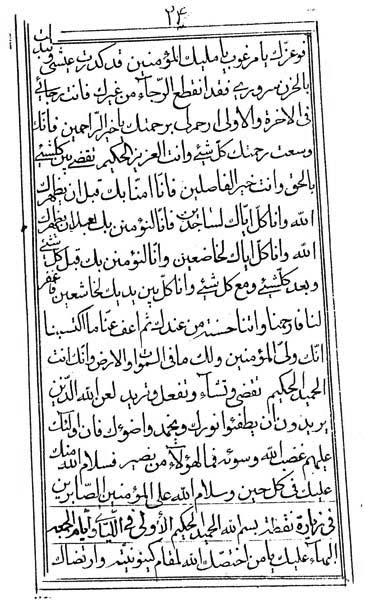 ٢٤
فوعزتك يا مرغوب يا مليك المؤمنين قد كدرت عيشتي وتبدلت
بالحزن سروري فقد انقطع الرجاء من غيرك فانت رجائي
في الاخرة والاولى ارحم لي برحمتك يا خير الراحمين فانك
وسعت رحمتك كل شئ وانت العزيز الحكيم تقضي بين كلشئ
بالحق وانت خير الفاصلين فانا امنا بك قبل ان يظهرك
الله وانا كل اياك لساجدين وانا لنؤمنن بك بعد ان يظهرك
الله وانا كل اياك لخاضعين وانا لنؤمنن بك قبل كل شئ
وبعد كلشئ ومع كل شئ وانا كل بين يديك لخاشعين فاغفر
لنا فارحمنا واتنا حسنة من عندك ثم اعف عنا ما اكتسبنا
انك ولي المؤمنين ولك ما في السموات والارض وانك انت
الحميد الحكيم تقضي وتشاء وتفعل وتريد لعن الله الذين
يريدون ان يطفئوا نورك ويخمدوا ضوئك فان اولئك
عليهم غضب الله وسوئه فما لهؤلاء من بصير فسلام الله منك
عليك في كل حين وسلام الله على المؤمنين الصابرين
في زيارة نقطة بسم الله الحميد الحكيم الأولى في الليالي وايام الجمعه
البهاء عليك يا من اختصك الله لمقام كينونيته وارتضاك